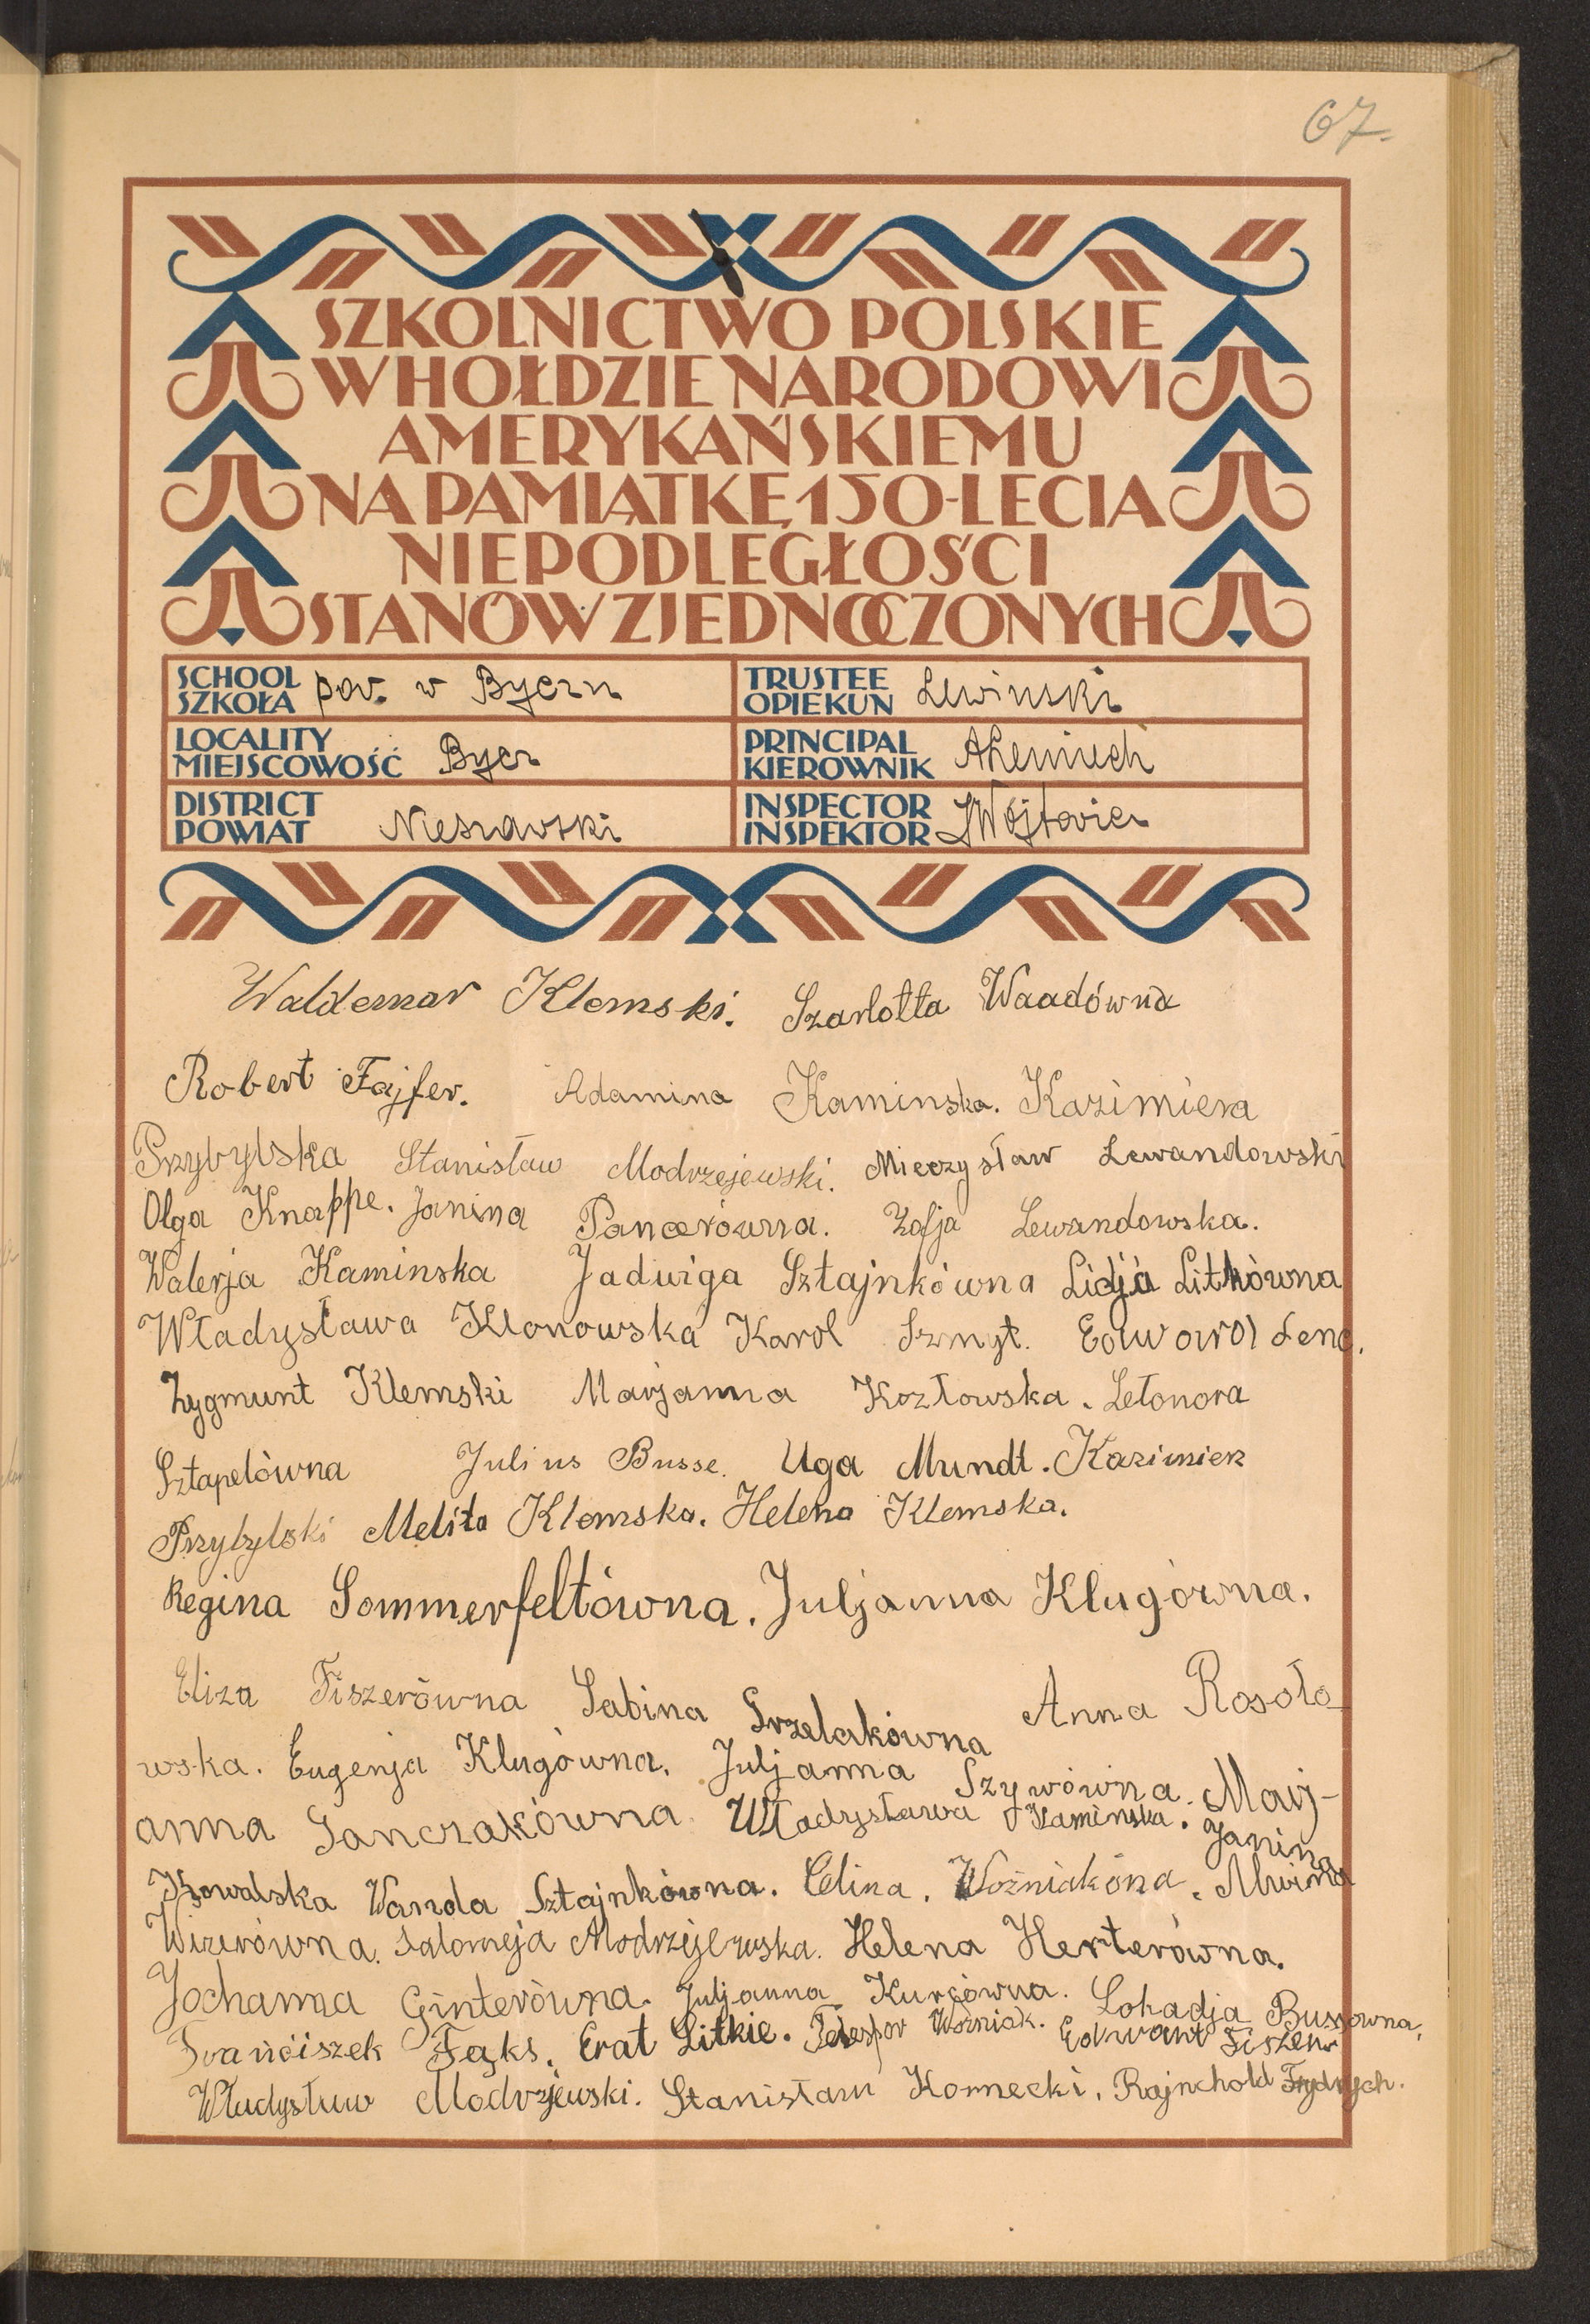 67.
SZKOLNICTWO POLSKIE
W HOŁDZIE NARODOWI
AMERYKAŃSKIEMU
NA PAMIĄTKĘ 150-LECIA
NIEPODLEGŁOŚCI
STANÓW ZJEDNOCZONYCH
SCHOOL
SZKOŁA pow. w Byczu
TRUSTEE
OPIEKUN Lewinski
LOCALITY
MIEJSCOWOŚĆ Bycz
PRINCIPAL
KIEROWNIK
DISTRICT
POWIAT Nieszawski
INSPECTOR
INSPEKTOR JWójtowicz
Waldemar Klemski. Szarlotta Waadówna
Robert Fajfer. Adamina Kaminska. Kazimiera
Przybylska Stanisław Modrzejewski. Mieczysław Lewandowski
Olga Knappe. Janina Pancerówna. Zofja Lewandowska.
Walerja Kaminska Jadwiga Sztajnkówna Lidja Litkówna
Władysława Klonowska Karol Szmyt. Edward Lenc.
Zygmunt Klemski Marjanna Kozłowska. Letonora
Sztapelówna Julius Busse. Uga Mundt. Kazimierz
Przybylski Melita Klemska. Helena Klemska.
Regina Sommerfeltówna. Juljanna Klugówna.
Eliza Fiszerówna Sabina Grzelakówna Anna Rosoło-
wska. Eugenja Klugówna. Juljanna Szywówna. Marj-
anna Janczakówna Władysława Kaminska. Janina
Kowalska Wanda Sztajnkówna. Celina. Woźniakóna. Alwina
Wizerówna. Salomeja Modrzejewska. Helena Herterówna.
Jochanna Ginterówna. Juljanna Kurcówna. Lokadja Bussówna.
Franciszek Fąks. Erat Litkie. Telesfor Woźniak. Edwart Fiszer
Władysław Modrzjewski. Stanisław Konnecki. Rajnchold Frydrych.